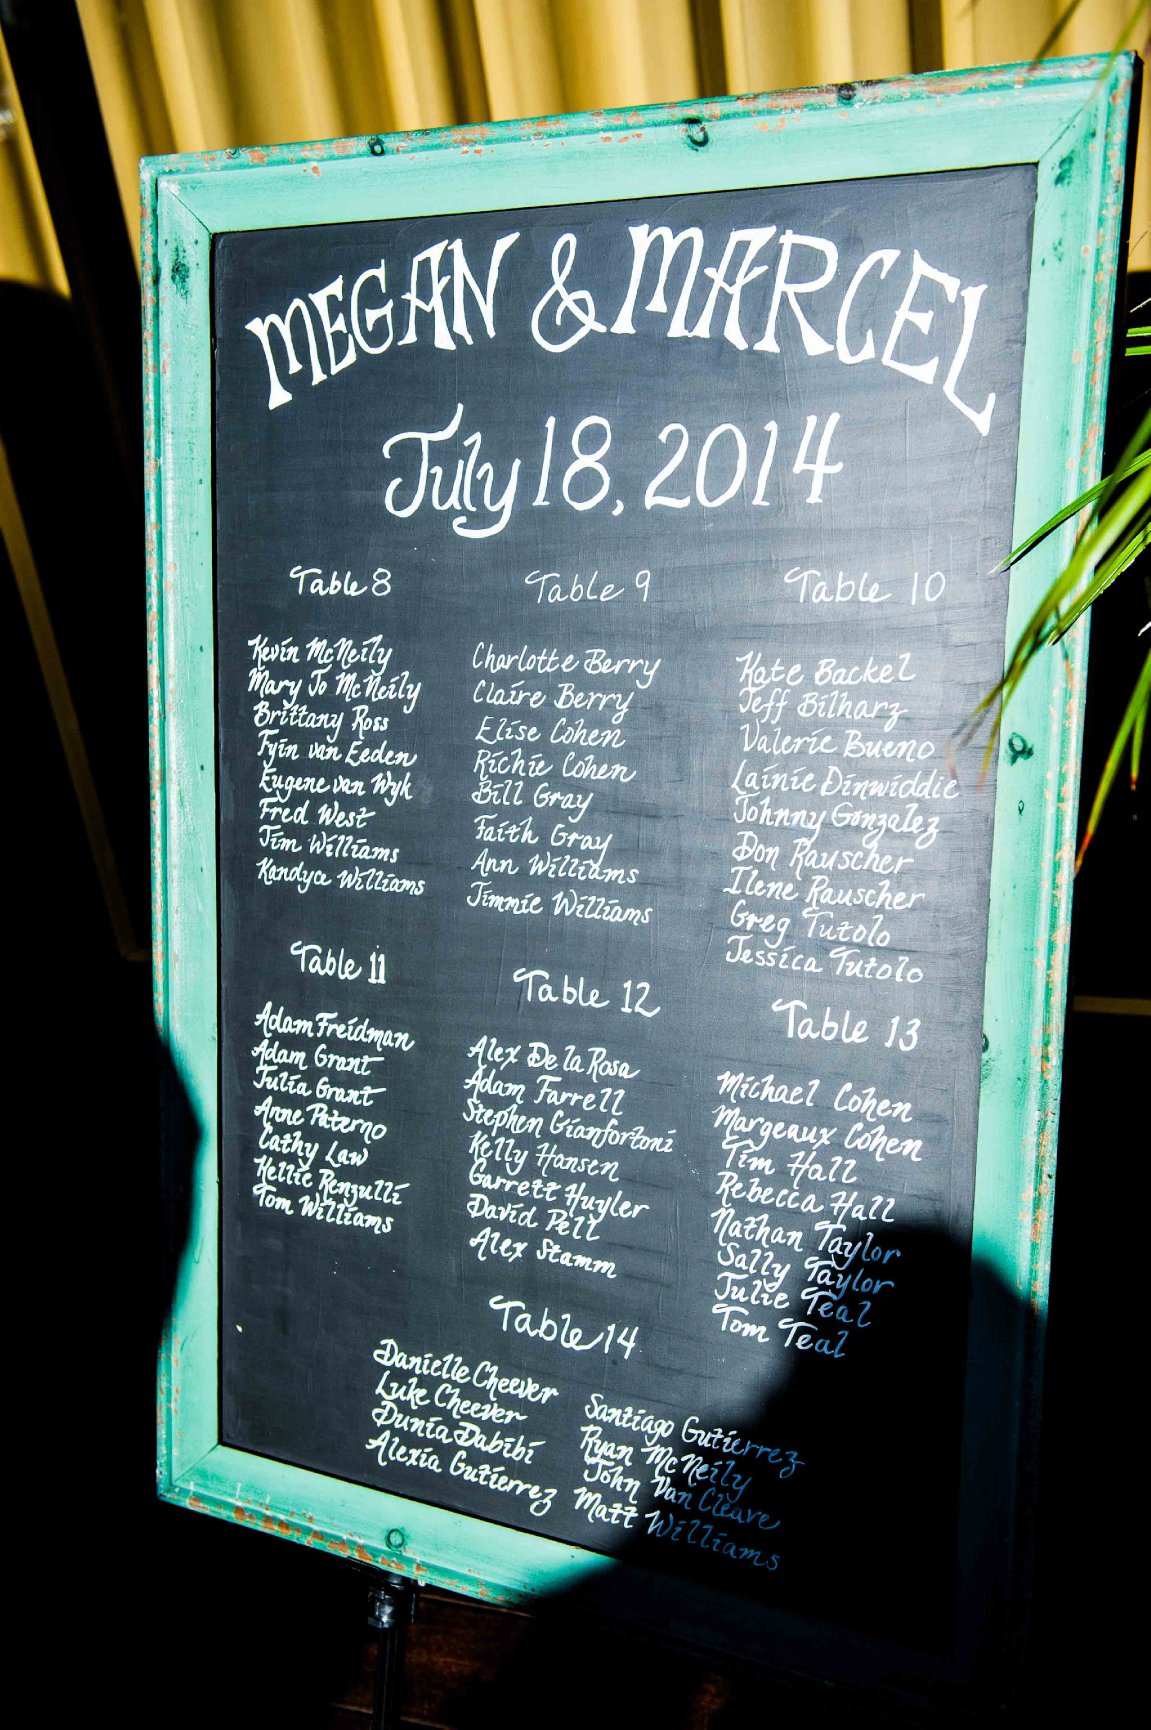 MEGAN & MARCEL
July 18, 2014
Table 8
Kevin McNeily
Mary Jo McNeily
Brittany Ross
Fyin van Eeden
Eugene van Wyk
Fred West
Jim Williams
Kandyce Williams
Table 9
Charlotte Berry
Claire Berry
Elise Cohen
Richie Cohen
Bill Gray
Faith Gray
Ann Williams
Jimmie Williams
Table 10
Kate Backel
Jeff Bilharz
Valerie Bueno
Lainie Dinwiddie
Johnny Gonzalez
Don Rauscher
Ilene Rauscher
Greg Tutolo
Jessica Tutolo
Table 11
Adam Freidman
Adam Grant
Julia Grant
Anne Paterno
Cathy Law
Kellie Renzulli
Tom Williams
Table 12
Alex De la Rosa
Adam Farrell
Stephen Gianfortoni
Kelly Hansen
Garrett Huyler
David Pell
Alex Stamm
Table 13
Michael Cohen
Margeaux Cohen
Tim Hall
Rebecca Hall
Nathan Taylor
Sally Taylor
Julie Teal
Tom Teal
Table 14
Danielle Cheever
Luke Cheever
Dunia Dabibi
Alexia Gutierrez
Santiago Gutierrez
Ryan McNeily
John Van Cleave
Matt Williams